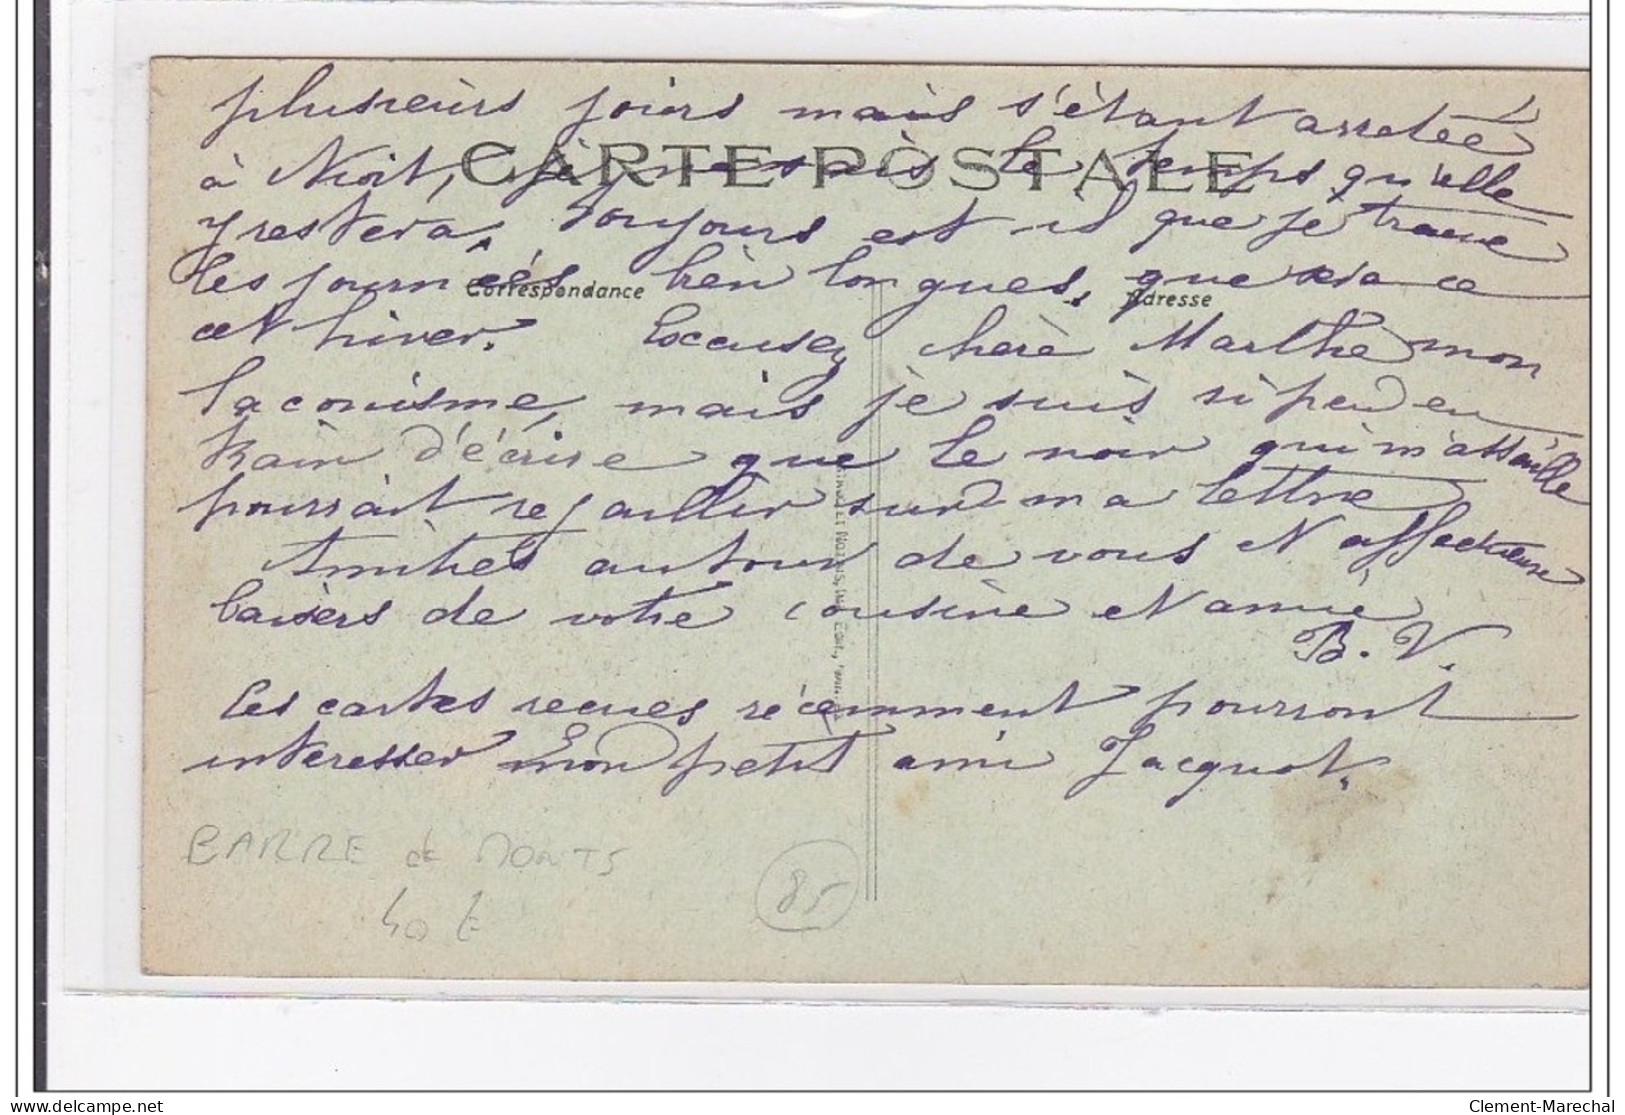 plusieurs jours mais s'étant arretée
à Niort, je ne sais le temps qu'elle
CARTE POSTALE
y restera, Toujours est-il que je trouve
les journées bien longues, que sera ce
Correspondance
Adresse
cet hiver. Excusez chère Marthe mon
laconisme, mais je suis si peu en
train d'écrire que le noir qui m'assaille
pourrait rejaillir sur ma lettre
Amitiés autour de vous et affectueux
baisers de votre cousine et amie
B. V.
Les cartes recues récemment pourront
interesser mon petit ami Jacquot.
BARRE de MONTS
40 E
85
Clement-Marechal